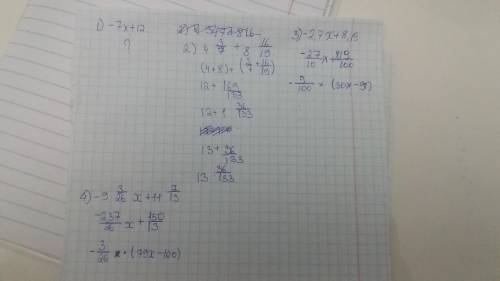 1) -7x+12
?
2) 4 3/7 + 8 16/19
(4+8)+(3/7+16/19)
12+ 169/133
12+1 36/133
13+ 36/133
13 36/133
3) -2,7x+8,19
-27/10 x + 819/100
-9/100 × (30x-91)
4) -9 3/26 x+11 7/13
-237/26 x + 150/13
-3/26 · (79x-100)